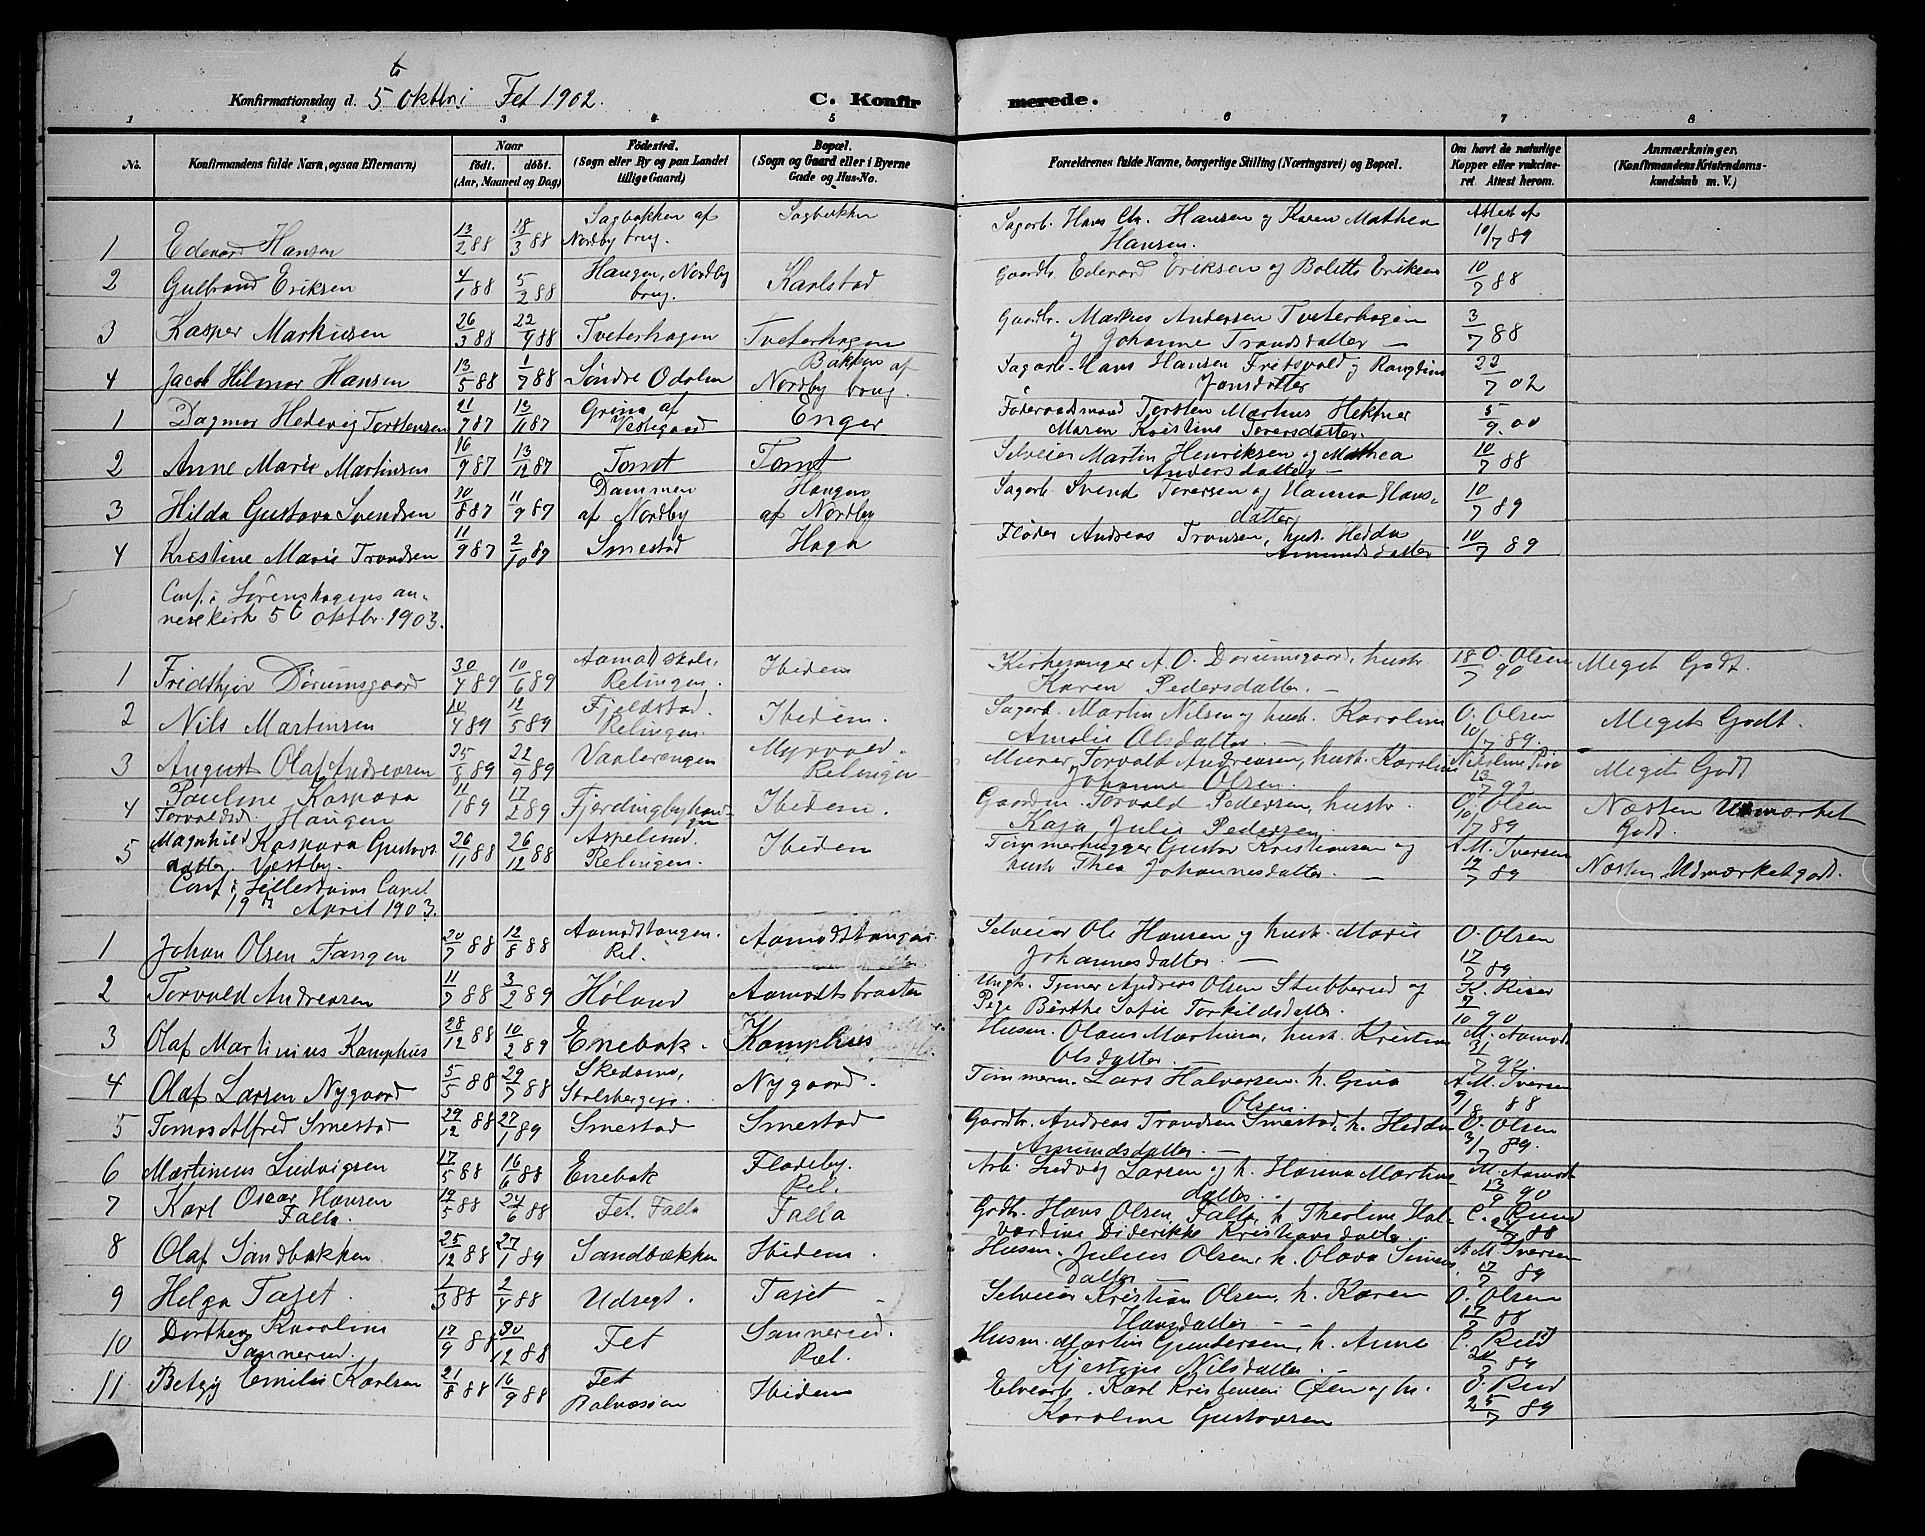 Konfirmationsdag d. 5te Oktbr i Fet 1902.
C. Konfir merede.
1 2 3 4 5 6 7 8
No.
Konfirmandens fulde Navn, ogsaa Efternavn)
Naar
født. døbt.
(Aar, Maaned og Dag)
Fødested.
(Sogn eller By og paa Landet
tillige Gaard)
Bopæl.
(Sogn og Gaard eller i Byerne
Gade og Hus-No.
Forældrenes fulde Navne, borgerlige Stilling (Næringsvei) og Bopæl.
Om havt de naturlige
Kopper eller vakcine-
ret Attest herom.
Anmærkninger,
(Konfirmandens Kristendoms-
kundskab m. V.)
1 Edvard Hansen 13/2 88 18/3 88 Sagbakken af Nordby brug. Sagbakken Sagarb. Hans Chr. Hansen og Karen Mathea Hansen. Attest af 10/7 89
2 Gulbrand Eriksen 4/1 88 5/2 88 Haugen, Nordby brug. Karlstad Gaardb. Edevard Eriksen og Bolette Eriksen 10/7 88
3 Kasper Markusen 26/3 88 22/4 88 Tveterhagen Tveterhagen Gaardb. Markus Andersen Tveterhagen og Johanne Trondsdatter — 3/7 88
4 Jacob Hilmar Hansen 13/5 88 1/7 88 Søndre Odalen Bakken af Nordby brug. Sagarb. Hans Hansen Fridsvold og Jonsdatter 22/7 02
1 Dagmar Hedevig Torstensen 21/7 87 13/11 87 Grina af Vestgaard Enger Føderaadsmand Torsten Martius Hektner Maren Kristine Toversdatter. 5/9 00
2 Anne Marie Martinsen 16/9 87 13/12 87 Tomt Tomt Selveier Martin Henriksen og Mathea Andersdatter — 10/7 88
3 Hilda Gustava Svendsen 20/8 87 11/9 87 Dammen af Nordby Haugen af Nordby Sagarb. Svend Torersen og Hanna Hans- datter 10/7 89
4 Kristine Marie Trondsen 11/9 87 2/10 87 Smestad Haga Fløder Andreas Tronsen, hust. Hedda Amundsdatter 10/7 89
Conf. i Sørenshagens an-
nexkirke 5t oktbr. 1903.
1 Fridthjov Dørumsgaard 30/4 89 10/6 89 Aamodt skole, Relingen. Ibidem Kirkesanger A. O. Dørumsgaard, hustr. Karen Pedersdatter. — 18/7 90 O. Olsen Meget Godt.
2 Nils Martinsen 10/4 89 12/5 89 Fjeldstad. Relingen. Ibidem. Sagarb. Martin Nilsen og hust. Karoline Amalie Olsdatter — O. Olsen 10/7 89. Meget Godt.
3 August Olaf Andreasen 25/8 89 22/9 89 Vaalerengen Myrvold. Relingen Murer Torvald Andreasen, hust. Karoline Johanne Olsen. 13/7 92 Meget Godt
4 Pauline Kaspara Torvaldsd. Haugen 11/1 89 17/2 89 Fjerdingbyhau- gen Ibidem. Gaardm. Torvald Pedersen, hustr. Kaja Julie Pedersen. O. Olsen 10/7 89 Næsten Udmærket Godt.
5 Magnhild Kaspara Gustavs datter Vestby. 26/11 88 26/12 88 Aspelund Relingen. Ibidem Tømmerhugger Gustav Kristiansen og hust Thea Johannesdatter. — A. M. Iversen 12/7 89 Næsten Udmærket godt.
Conf. i Lillestrøms Capel
19de April 1903.
1 Johan Olsen Tangen 20/7 88 12/8 88 Aamodttangen. Rel. Aamodttangen Selveier Ole Hansen og hust. Marie Johannesdatter. — O. Olsen 17/7 89
2 Torvald Andreasen 11/7 88 3/2 89 Høland Aamodtbraaten Ungk. Tjener Andreas Olsen Stubberud og Pige Berthe Sofie Torkildsdatter. K. Riser 7/10 90
3 Olaf Martinius Kamphus 28/12 88 10/2 89 Enebak. Kamphus Husm. Olaus Martinsen, hust. Kristine Olsdatter — M. Aamodt 31/7 94.
4 Olaf Larsen Nygaard 5/5 88 29/7 88 Skedsmo, Nygaard. Tømmerm. Lars Halvorsen h. Gina Olsen. A. M. Iversen 9/8 88
5 Tomas Alfred Smestad 29/12 88 27/1 89 Smestad Smestad Gaardb. Andreas Trondsen Smestad, h. Hedda Amundsdatter — O. Olsen 3/7 89.
6 Martinius Ludvigsen 17/5 88 16/6 88 Enebak Fladeby. Rel. Arb. Ludvig Larsen og h. Hanna Martins datter. M. Aamodt 13/9 90
7 Karl Oscar Hansen Falla. 19/5 88 24/6 88 Fet, Falla Falla Gdbr. Hans Olsen Falla, h. Theoline Hal- vardine Diderikke Kristiansdatter. 88
8 Olaf Sandbakken 25/12 88 27/1 89 Sandbækken Ibidem. Husm. Julius Olsen, h. Olava Simens datter — A. M. Iversen 17/7 89
9 Helga Tajet. 1/3 88 2/4 88 Udsigt. Tajet — Selveier Kristian Olsen, h. Karen Hansdatter — O. Olsen 17/7 88
10 Dorthea Karoline Sannerud. 17/9 88 30/12 88 Fet Sannerud. Rel. Husm. Martin Gundersen, h. Anne Kjerstine Nilsdatter. 20/7 89
11 Betzy Emilie Karlsen 21/8 88 16/9 88 Fet Ibidem Elvearb. Karl Kristensen Øien og h. Karoline Gustavsen 25/7 89